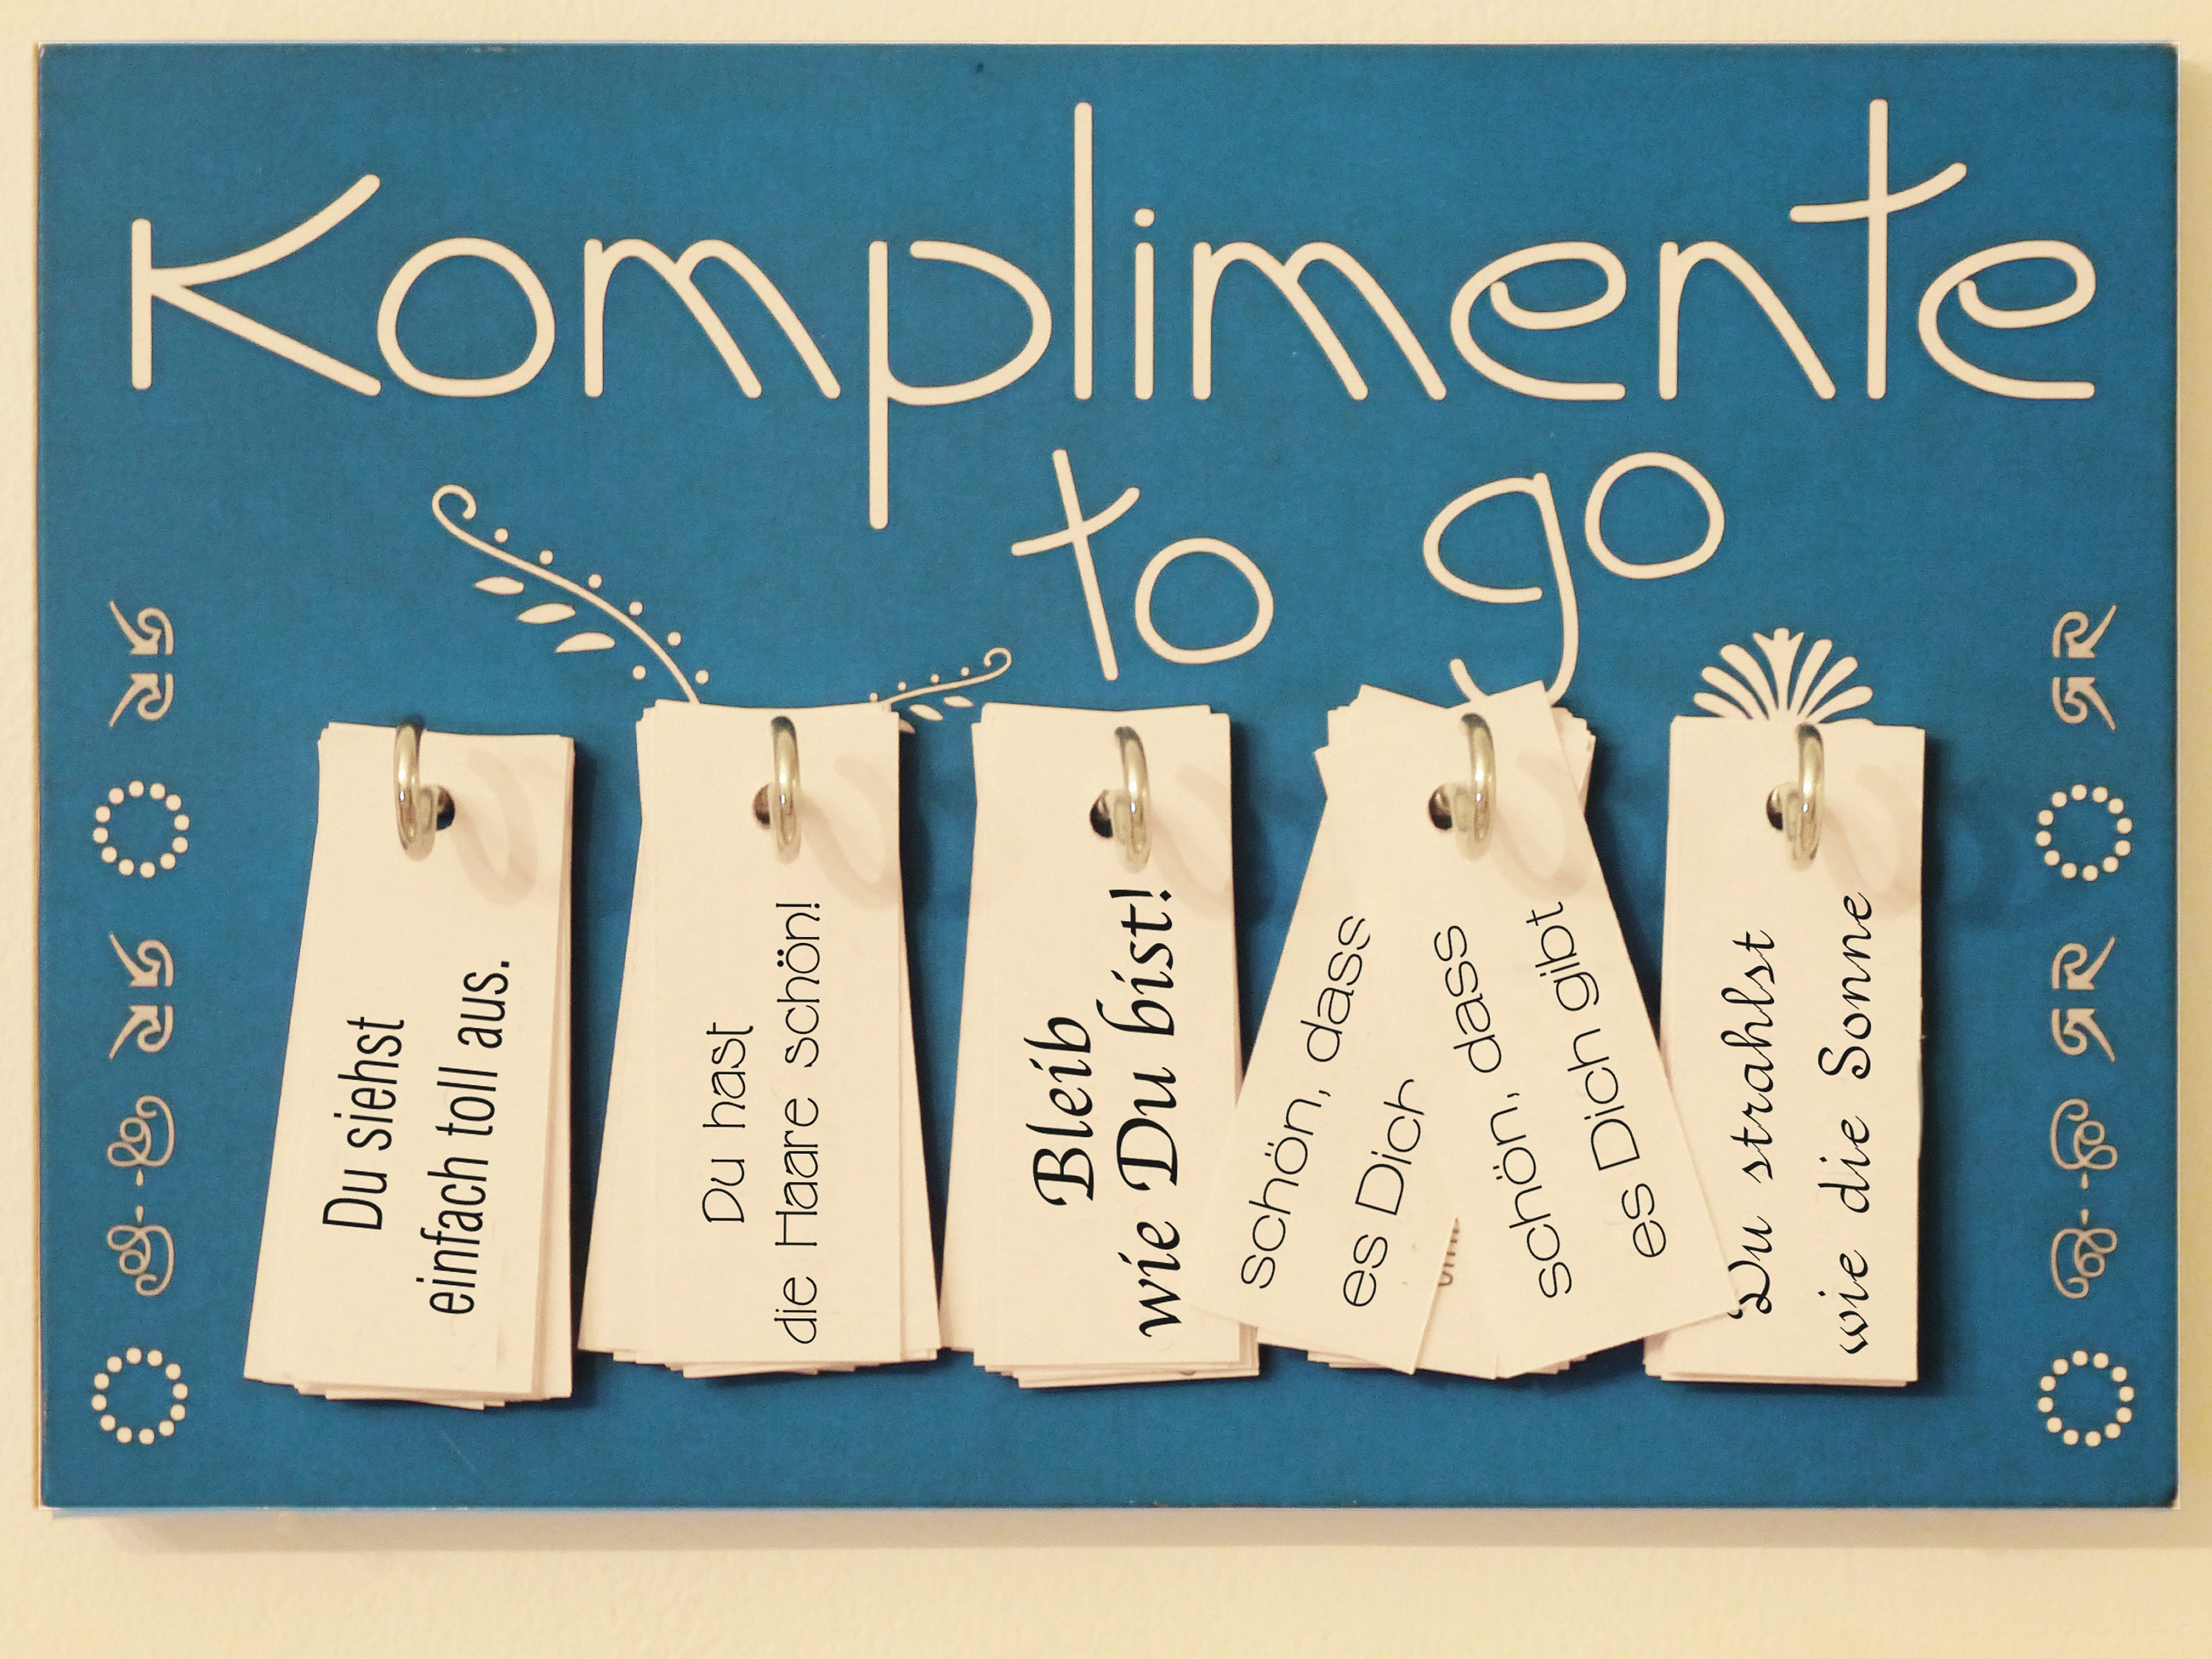 Komplimente
to go
Du siehst
einfach toll aus.
Du hast
die Haare schön!
Bleib
wie Du bist!
schön, dass
es Dich
schön, dass
es Dich gibt
Du strahlst
wie die Sonne